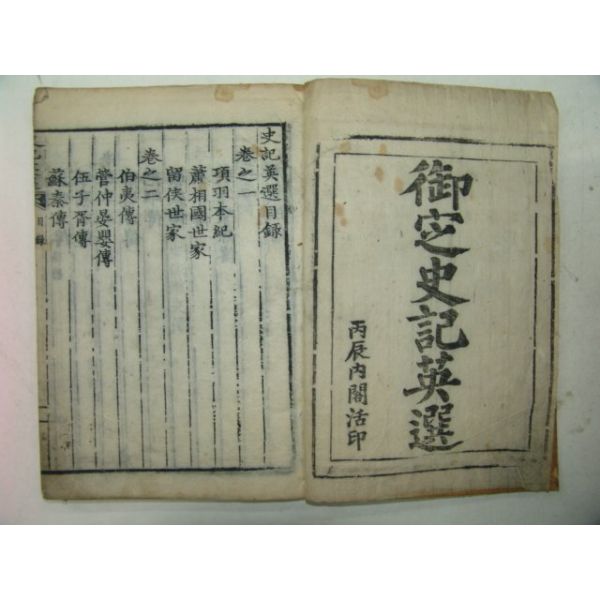 御定史記英選
丙辰內閣活印
史記英選目錄
卷之一
項羽本紀
蕭相國世家
留侯世家
卷之二
伯夷傳
管仲晏嬰傳
伍子胥傳
蘇秦傳
目錄